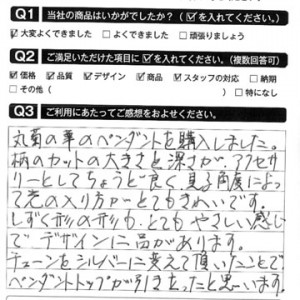 Q1 当社の商品はいかがでしたか？（☑を入れてください。）
☑大変よくできました □よくできました □頑張りましょう
Q2 ご満足いただけた項目に☑を入れてください。（複数回答可）
☑価格 ☑品質 ☑デザイン ☑商品 ☑スタッフの対応 □納期
□その他（ ） □特になし
Q3 ご利用にあたってご感想をおよせください。
丸菊の華のペンダントを購入しました。
柄のカットの大きさと深さが、アクセサ
リーとしてちょうど良く、見る角度によっ
て光の入り方がとてもきれいです。
しずく形の形も、とてもやさしい感じ
で、デザインに品があります。
チェーンをシルバーに変えて頂いたことで
ペンダントトップが引きたったと思います。